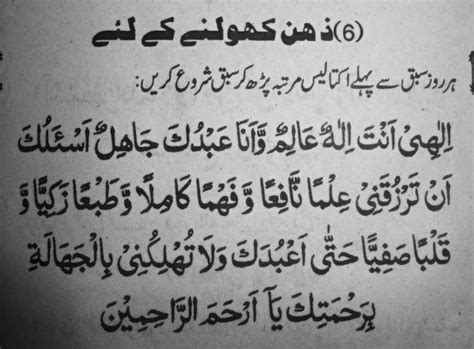 (6) ذهن کھولنے کے لئے
هر روز سبق سے پہلے اکتالیس مرتبہ پڑھ کر سبق شروع کریں:
اِلٰهِیْ اَنْتَ اِلٰهٌ عَالِمٌ وَّاَنَا عَبْدُكَ جَاهِلٌ اَسْئَلُكَ
اَنْ تَرْزُقَنِیْ عِلْمًا نَّافِعًا وَّفَهْمًا كَامِلًا وَّطَبْعًا زَكِيًّا وَّ
قَلْبًا صَفِيًّا حَتّٰى اَعْبُدَكَ وَلَا تُهْلِكْنِیْ بِالْجَهَالَةِ
بِرَحْمَتِكَ يَآ اَرْحَمَ الرَّاحِمِيْنَ